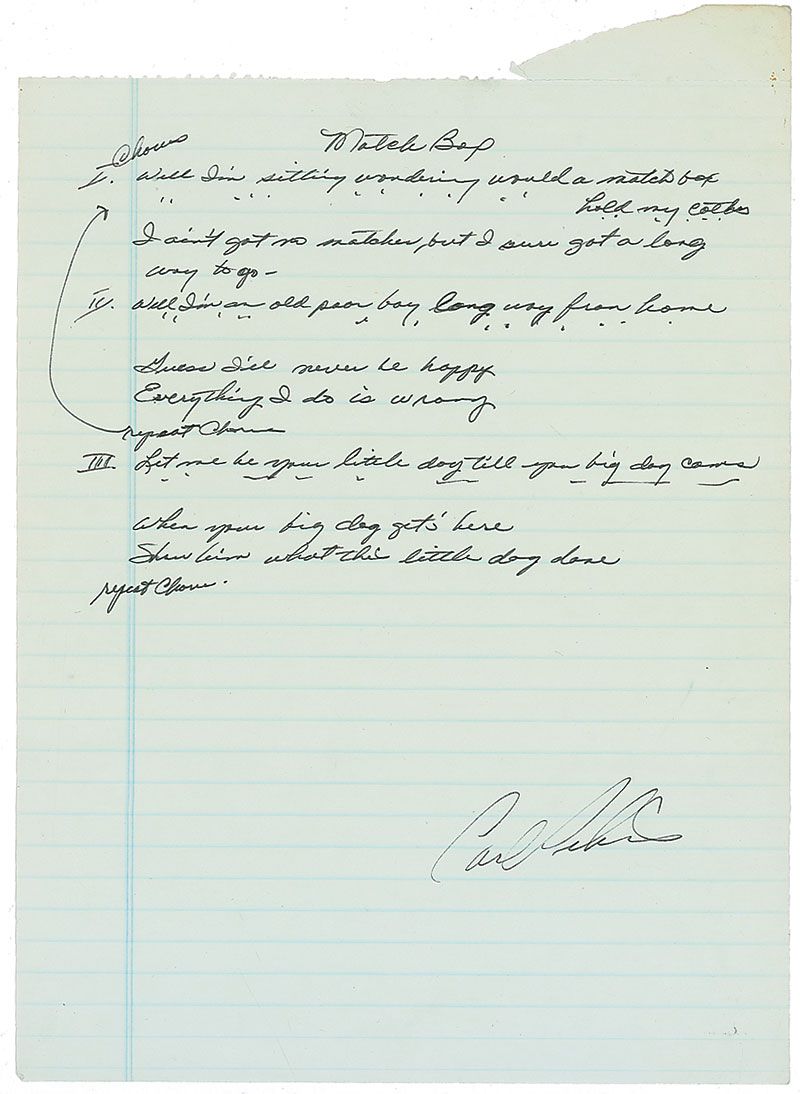 Match Box
Chorus
I. Well I'm sitting wondering would a match box
hold my cothes
I ain't got no matches, but I sure got a long
way to go –
IV. Well I'm an old poor boy long way from home
Guess I'll never be happy
Everything I do is wrong
repeat Chorus
III. Let me be your little dog till your big dog comes
When your big dog get's here
Show him what this little dog done
repeat Chorus.
Carl Perkins